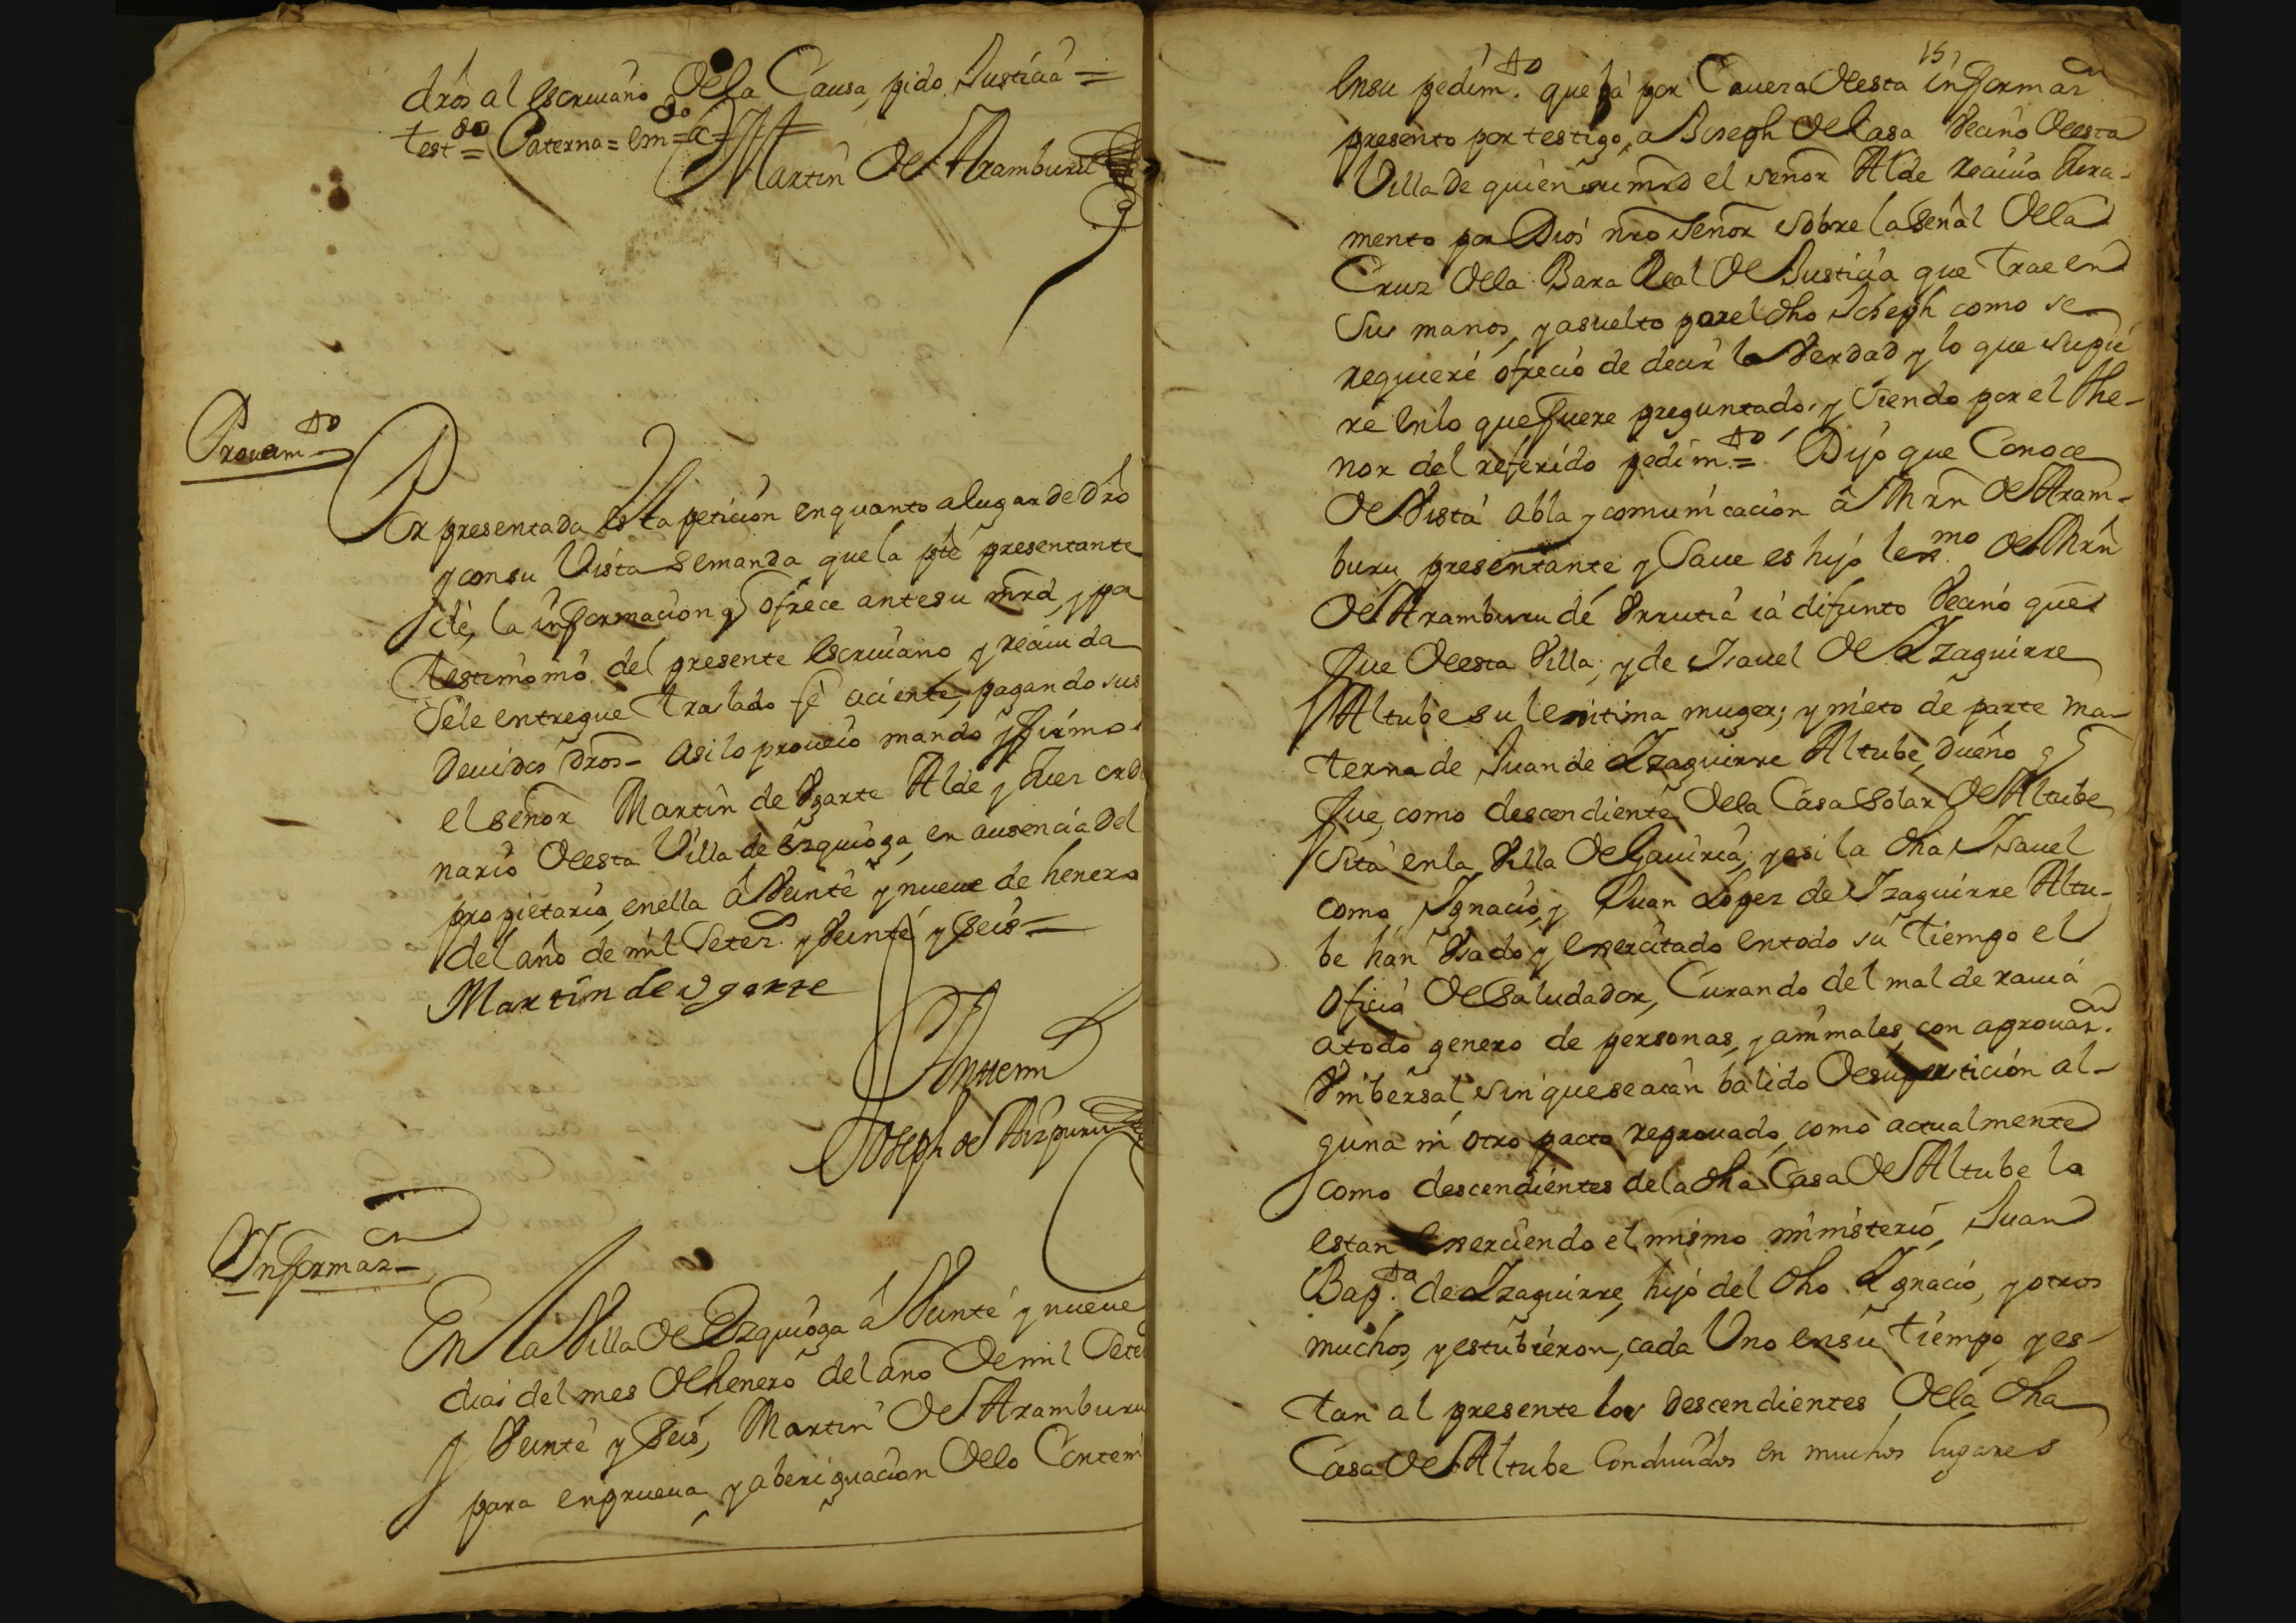 dros al escriuano dela Causa, pido Justicia =
test.do = Paterna = em.do = a =
Martin de Aramburu
Proueim.to
Por presentada esta peticion en quanto a lugar de dro
y con su Vista se manda que la pte presentante
de, la informacion q ofrece ante su mrd, y por
testimonio del presente escriuano y reciuida
se le entregue traslado feé aciente, pagando sus
deuidos dros - asi lo proueio mando y firmo
el señor Martin de Vgarte Alde y Juez ordi
nario de esta Villa de Ezquioga, en ausencia del
propietario, en ella â Veinte y nueue de henero
del año de mil setez.s y Veinte y seis =
Martin de Vgarte
Ante mi
Joseph de Aizpuru
Informaz.on
En la Villa de Ezquioga â Veinte y nueue
dias del mes de henero del año de mil sete
y Veinte y seis, Martin de Aramburu
para en prueua, y aberiguacion de lo Conteni
15
en su pedim.to que bá por Cauera de esta informaz.on
presento por testigo, a Joseph de Casa Vecino de esta
Villa de quien su mrd el señor Alde reciuio Jura-
mento por Dios nro señor sobre la señal dela
Cruz dela Bara Real de Justicia que trae en
sus manos, y asuelto por el dho Joseph como se
requiere ofrecio de decir la Verdad y lo que supie
re en lo que fuere preguntado, y siendo por el the-
nor del referido pedim.to = Dijo que Conoce
de Vista abla y comunicacion â Mrn de Aram-
buru presentante y saue es hijo lex.mo de Mrn
de Aramburu de Vrrutia ia difunto Vecino que
fue de esta Villa; y de Isauel de Yzaguirre
Altube su lexitima muger; y nieto de parte ma-
terna de Juan de Yzaguirre Altube, dueño q
fue, como descendiente dela Casa solar de Altube
sita en la Villa de Gauiria; y asi la dha Isauel
como Ignacio, y Juan Lopez de Izaguirre Altu-
be han Vsado y exercitado en todo su tiempo el
oficio de saludador, Curando del mal de rauia
a todo genero de personas, y animales, con aprouaz.on
Vnibersal sin que se aian balido de supersticion al-
guna ni otro pacto reprouado, como actualmente
como descendientes de la dha Casa de Altube la
estan exerciendo el mismo ministerio, Juan
Bap.ta de Yzaguirre, hijo del dho Ygnacio, y otros
muchos, y estubieron, cada Vno en su tiempo, y es-
tan al presente los descendientes dela dha
Casa de Altube Conduudos en muchos lugares